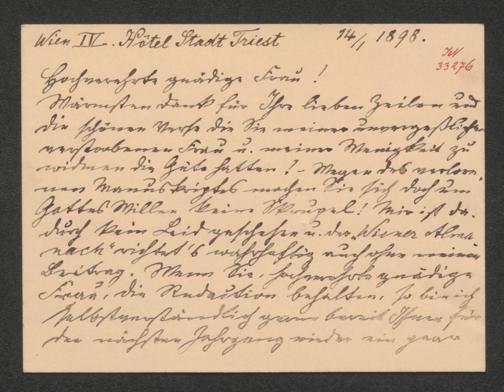 Wien IV. Hôtel Stadt Triest 14/1 1898.
IN
33276
Hochverehrte gnädige Frau!
Wärmsten Dank für Ihre lieben Zeilen und
die schönen Verse die Sie meiner unvergeßlichen
verstorbenen Frau u. meiner Wenigkeit zu
widmen die Güte hatten! – Wegen des verlore-
nen Manuskriptes machen Sie sich doch um
Gottes Willen keine Skrupel! Mir ist da-
durch kein Leid geschehen u. der „Wiener Alma-
nach" richtet's wahrhaftig auch ohne meinen
Beitrag. Wenn Sie, hochverehrte gnädige
Frau, die Redaction behalten, so bin ich
selbstverständlich gerne bereit Ihnen für
den nächsten Jahrgang wieder ein paar